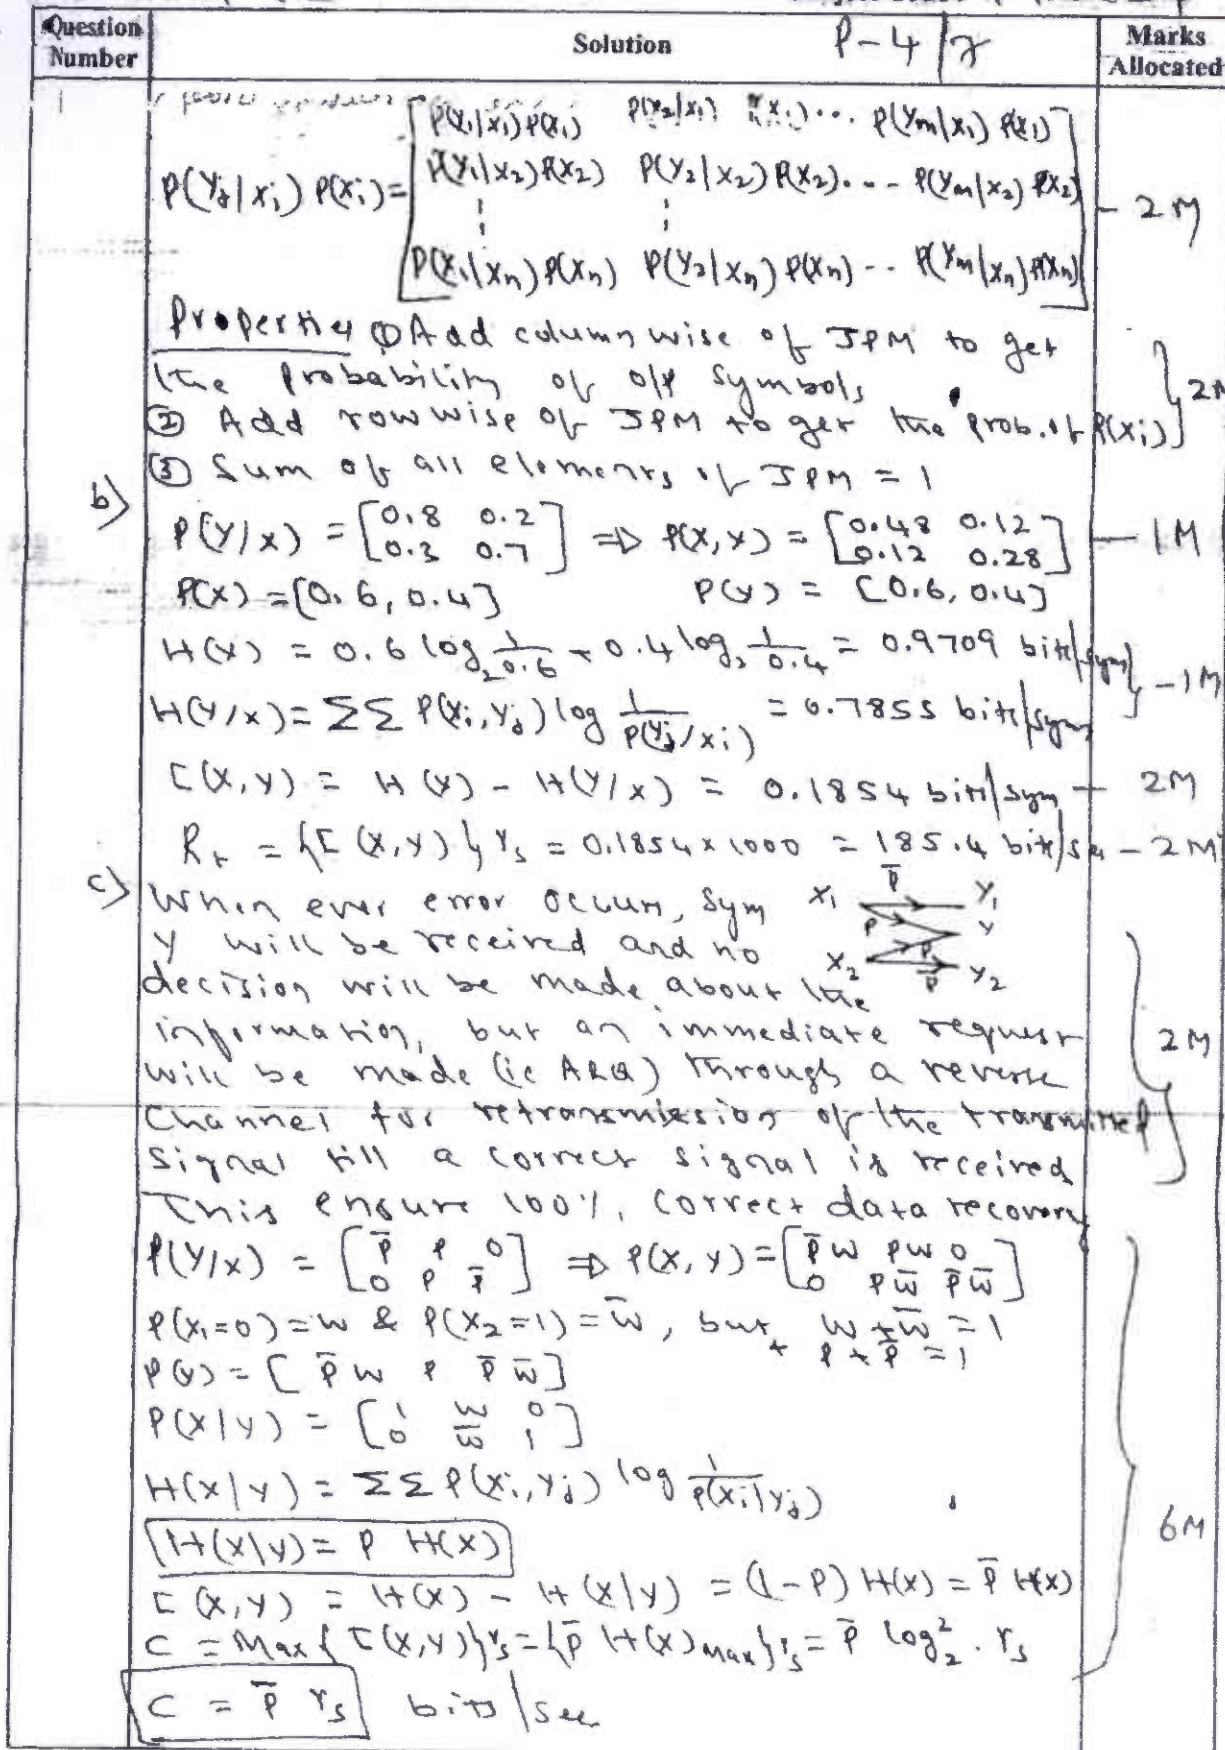 Question Number
Solution P-4/7
Marks Allocated
P(Y₁|x₁)P(x₁) P(Y₂|x₁) P(x₁)... P(Ym|x₁) P(x₁)
P(Yj|xi) P(xi) = P(Y₁|x₂)P(x₂) P(Y₂|x₂)P(x₂).-- P(Ym|x₂) P(x₂) - 2M
P(Y₁|xn)P(xn) P(Y₂|xn)P(xn) -- P(Ym|xn)P(xn)
Properties ① Add column wise of JPM to get
the probability of o/p symbols
② Add row wise of JPM to get the prob. of P(xi) } 2M
③ Sum of all elements of JPM = 1
b)
P(Y/x) = [0.8 0.2; 0.3 0.7] ⇒ P(X,Y) = [0.48 0.12; 0.12 0.28] - 1M
P(X) = [0.6, 0.4] P(Y) = [0.6, 0.4]
H(Y) = 0.6 log₂ 1/0.6 + 0.4 log₂ 1/0.4 = 0.9709 bits/sym
H(Y/x) = ΣΣ P(xi, Yj) log 1/P(Yj/xi) = 0.7855 bits/sym } - 1M
I(X,Y) = H(Y) - H(Y/x) = 0.1854 bits/sym - 2M
Rt = {I(X,Y)} rs = 0.1854 x 1000 = 185.4 bits/sec - 2M
c) When ever error occurs, sym
x₁ p̄ Y₁
Y will be received and no
p Y
x₂ p p̄ Y₂
decision will be made about the
information, but an immediate request } 2M
will be made (ie ARQ) through a reverse
channel for retransmission of the transmitted
signal till a correct signal is received
This ensure 100% correct data recovery
P(Y/x) = [p̄ p 0; 0 p p̄] ⇒ P(X,Y) = [p̄w pw 0; 0 pw̄ p̄w̄]
P(x₁=0) = w & P(x₂=1) = w̄, but w + w̄ = 1
+ p + p̄ = 1
P(Y) = [p̄w p p̄w̄]
P(X|Y) = [1 w 0; 0 w̄ 1]
H(X|Y) = ΣΣ P(xi, Yj) log 1/P(xi|Yj)
H(X|Y) = P H(X) } 6M
I(X,Y) = H(X) - H(X|Y) = (1-P) H(X) = p̄ H(X)
C = Max{I(X,Y)}rs = {p̄ H(X)max}rs = p̄ log₂² . rs
C = p̄ rs bits/sec